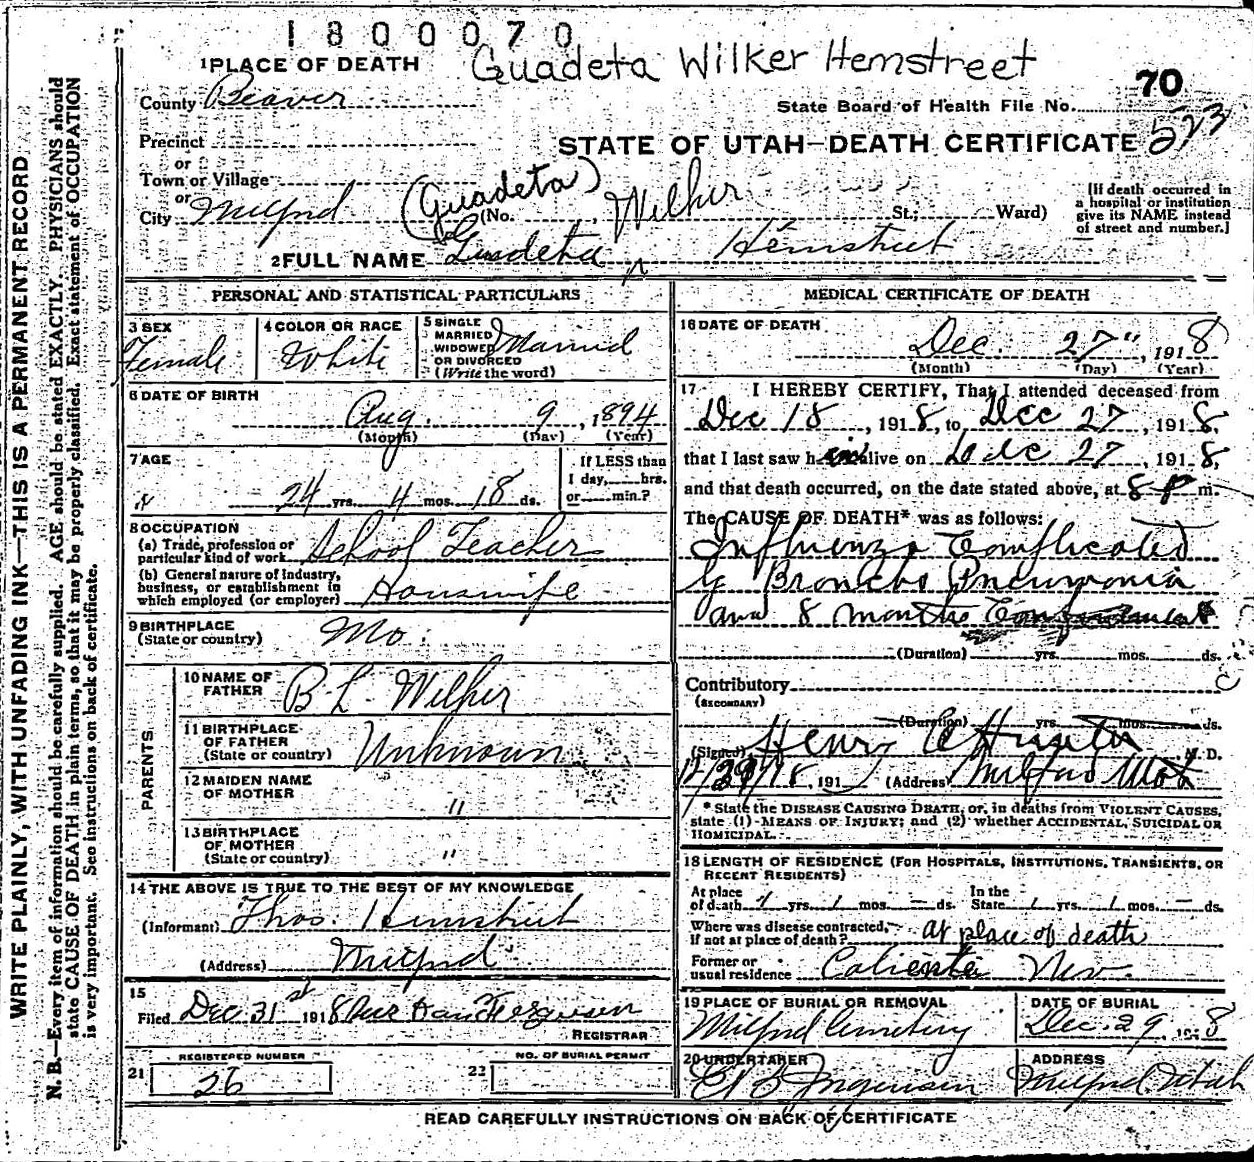 1800070
Guadeta Wilker Hemstreet
1 PLACE OF DEATH
70
County Beaver
State Board of Health File No.
523
Precinct
STATE OF UTAH—DEATH CERTIFICATE
or
Town or Village
or
City Milford (Guadeta) (No. Wilker St.; Ward)
[If death occurred in
a hospital or institution
give its NAME instead
of street and number.]
2 FULL NAME Guadeta Hemstreet
PERSONAL AND STATISTICAL PARTICULARS
3 SEX
Female
4 COLOR OR RACE
White
5 SINGLE
MARRIED
WIDOWED
OR DIVORCED
(Write the word)
Married
6 DATE OF BIRTH
Aug. 9, 1894
(Month) (Day) (Year)
7 AGE
24 yrs. 4 mos. 18 ds.
If LESS than
1 day, hrs.
or min.?
8 OCCUPATION
(a) Trade, profession or
particular kind of work School Teacher
(b) General nature of industry,
business, or establishment in
which employed (or employer) Housewife
9 BIRTHPLACE
(State or country) Mo.
PARENTS
10 NAME OF
FATHER B L Wilker
11 BIRTHPLACE
OF FATHER
(State or country) Unknown
12 MAIDEN NAME
OF MOTHER "
13 BIRTHPLACE
OF MOTHER
(State or country) "
14 THE ABOVE IS TRUE TO THE BEST OF MY KNOWLEDGE
(Informant) Thos. Hemstreet
(Address) Milford
15
Filed Dec 31st 1918
REGISTRAR
REGISTERED NUMBER
21 26
NO. OF BURIAL PERMIT
22
MEDICAL CERTIFICATE OF DEATH
16 DATE OF DEATH
Dec. 27", 1918
(Month) (Day) (Year)
17 I HEREBY CERTIFY, That I attended deceased from
Dec 18, 1918, to Dec 27, 1918,
that I last saw h alive on Dec 27, 1918,
and that death occurred, on the date stated above, at 8 P m.
The CAUSE OF DEATH* was as follows:
Influenza Complicated
by Broncho Pneumonia
and 8 months
(Duration) yrs. mos. ds.
Contributory
(SECONDARY)
(Duration) yrs. mos. ds.
(Signed) Henry M. D.
12/29/18, 191 (Address) Milford
* State the DISEASE CAUSING DEATH, or, in deaths from VIOLENT CAUSES,
state (1) MEANS OF INJURY; and (2) whether ACCIDENTAL, SUICIDAL OR
HOMICIDAL.
18 LENGTH OF RESIDENCE (FOR HOSPITALS, INSTITUTIONS, TRANSIENTS, OR
RECENT RESIDENTS)
At place
of death 1 yrs. 1 mos. — ds.
In the
State 1 yrs. 1 mos. — ds.
Where was disease contracted,
if not at place of death? at place of death
Former or
usual residence Caliente Nev.
19 PLACE OF BURIAL OR REMOVAL
Milford Cemetery
DATE OF BURIAL
Dec. 29, 1918
20 UNDERTAKER
ADDRESS
Milford Utah
READ CAREFULLY INSTRUCTIONS ON BACK OF CERTIFICATE
WRITE PLAINLY, WITH UNFADING INK—THIS IS A PERMANENT RECORD
N. B.—Every item of information should be carefully supplied. AGE should be stated EXACTLY. PHYSICIANS should
state CAUSE OF DEATH in plain terms, so that it may be properly classified. Exact statement of OCCUPATION
is very important. See instructions on back of certificate.